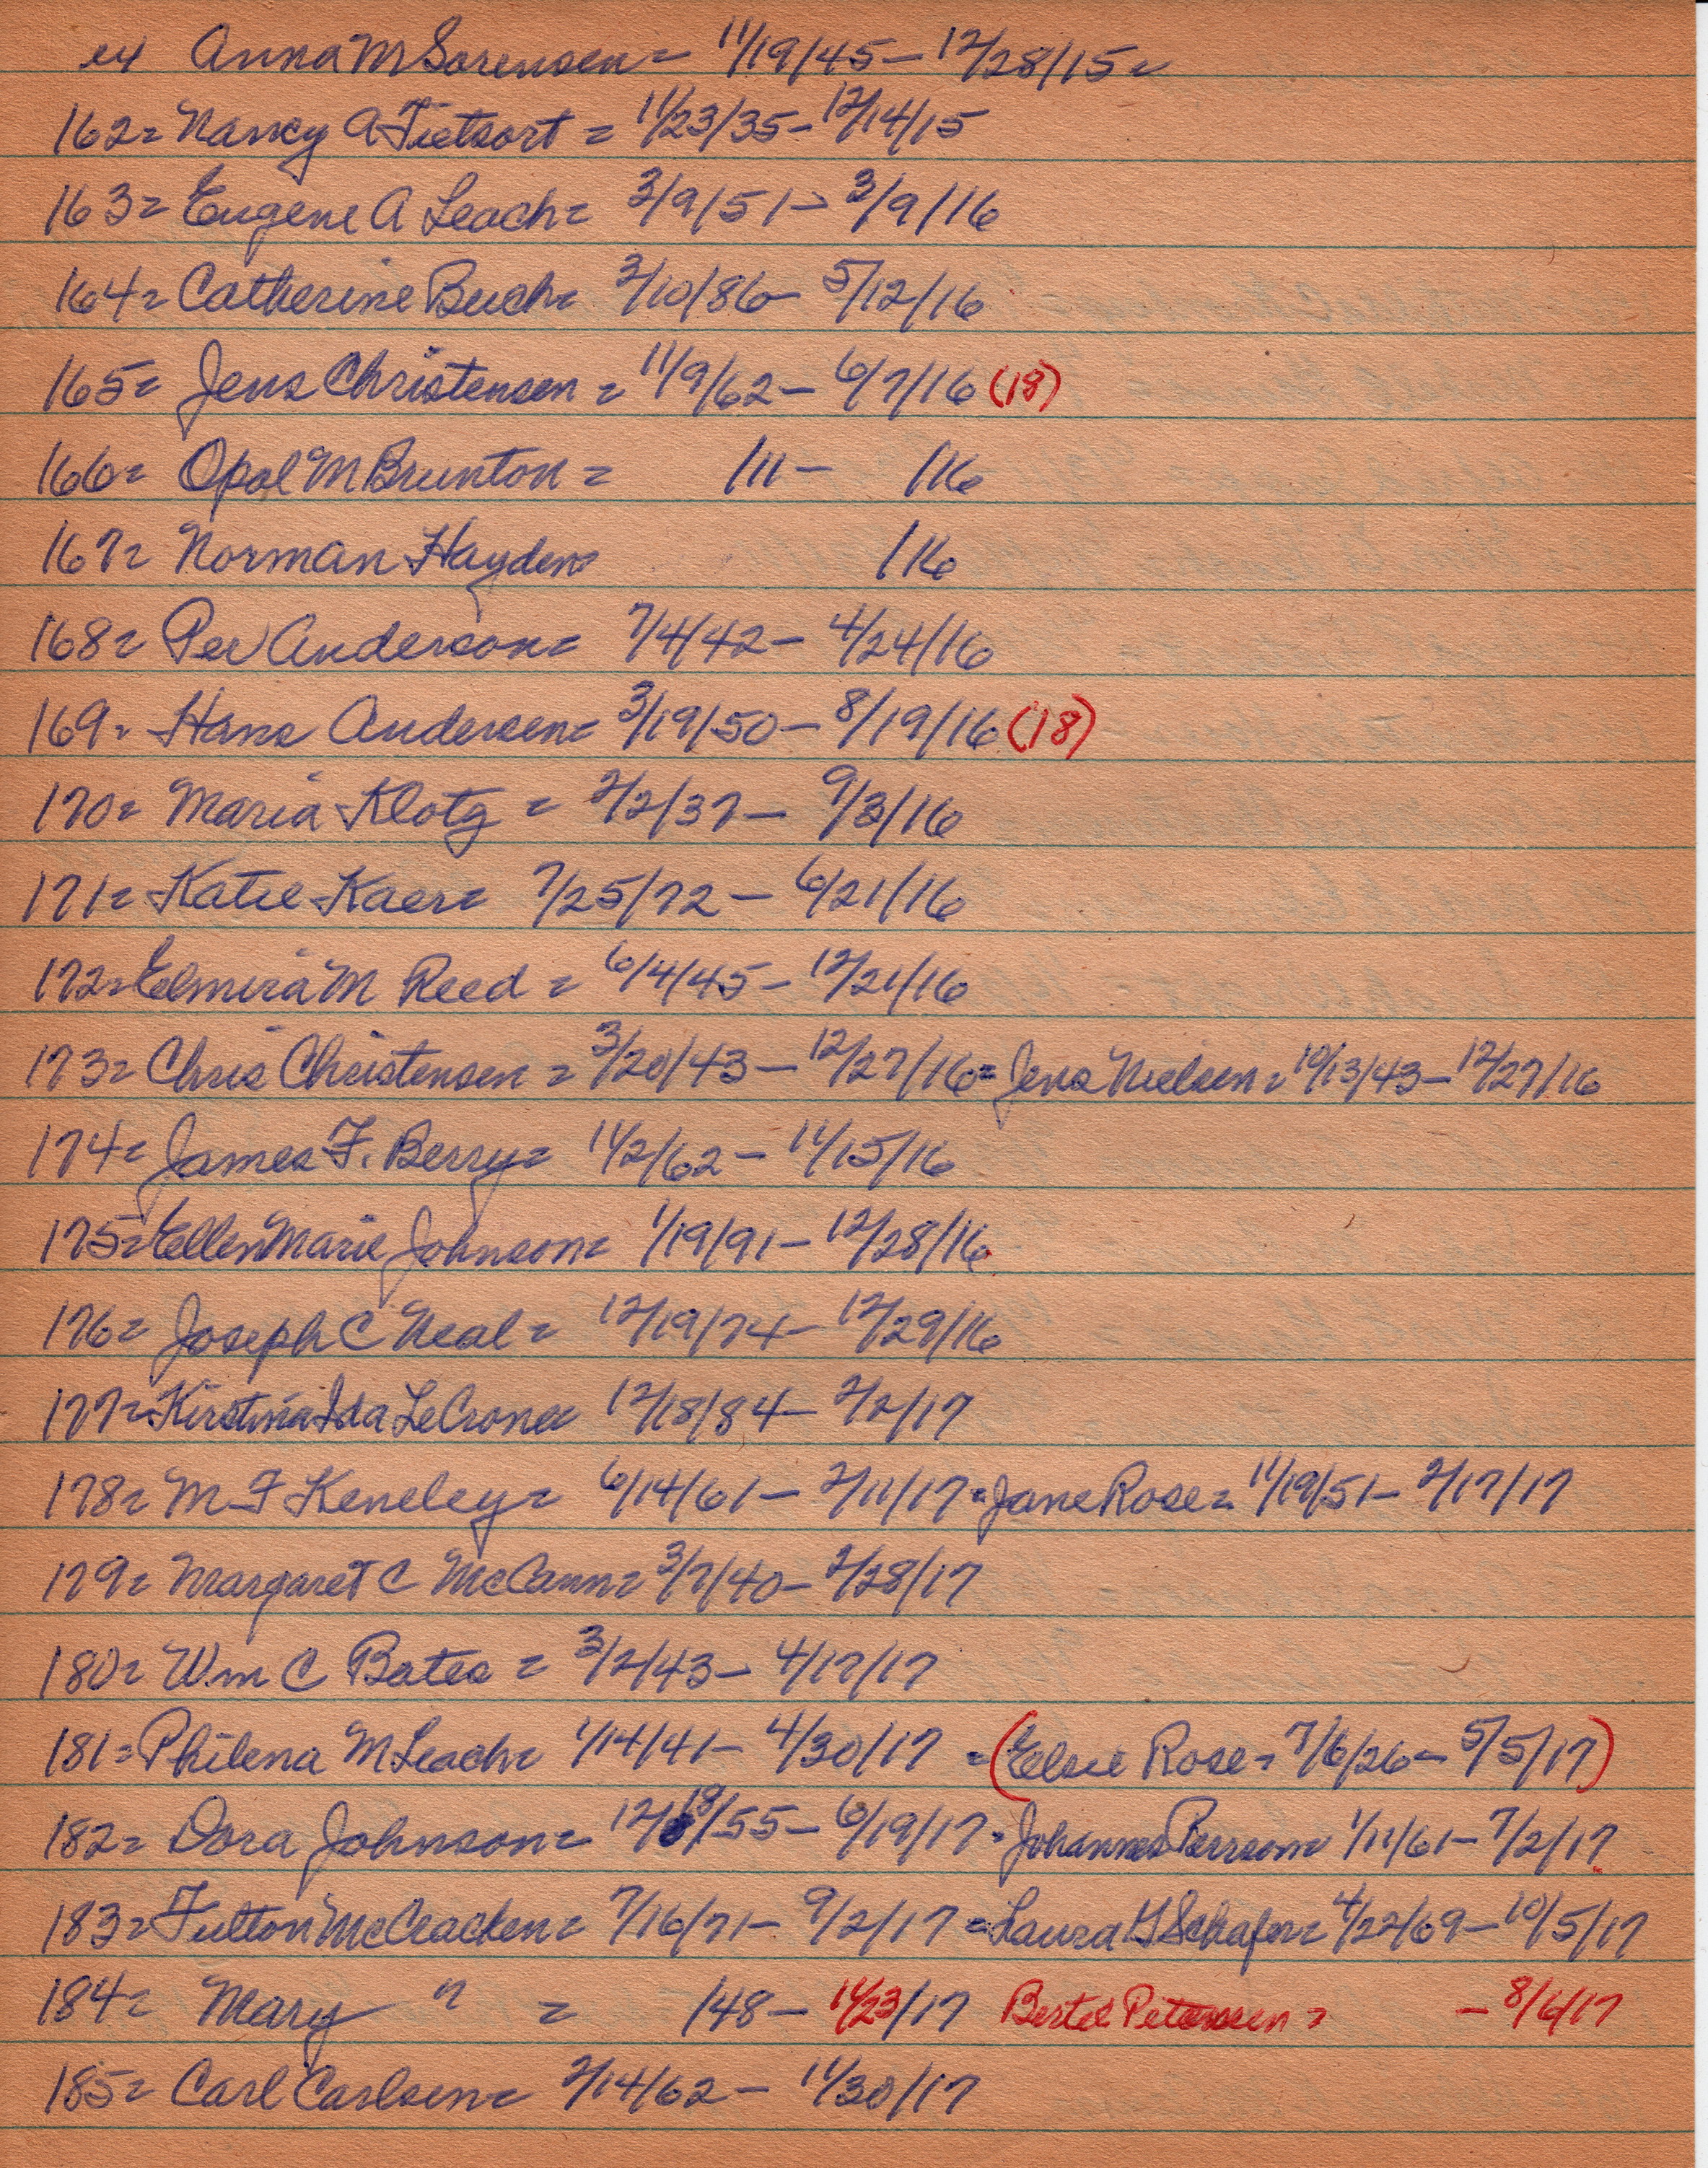 ex Anna M Sorensen = 11/19/45 - 12/28/15 =
162 = Nancy A Tietsort = 11/23/35 - 12/14/15
163 = Eugene A Leach = 3/9/51 - 3/9/16
164 = Catherine Buch = 3/10/86 - 5/12/16
165 = Jens Christensen = 11/9/62 - 6/7/16 (18)
166 = Opal M Brunton = /11 - /16
167 = Norman Hayden = /16
168 = Per Anderson = 7/4/42 - 4/24/16
169 = Hans Andersen = 3/19/50 - 8/19/16 (18)
170 = Maria Klotz = 2/2/37 - 9/3/16
171 = Katie Kaer = 7/25/72 - 6/21/16
172 = Elmira M Reed = 6/4/45 - 12/21/16
173 = Chris Christensen = 3/20/43 - 12/27/16 = Jens Nielsen = 10/13/43 - 12/27/16
174 = James F. Berry = 11/2/62 - 11/15/16
175 = Ellen Marie Johnson = 1/19/91 - 12/28/16
176 = Joseph C Neal = 12/19/74 - 12/29/16
177 = Kirstina Ida LeCrone = 12/18/84 - 2/2/17
178 = M F Keneley = 6/14/61 - 2/11/17 = Jane Rose = 11/19/51 - 2/17/17
179 = Margaret C McCann = 3/7/40 - 2/28/17
180 = Wm C Bates = 3/2/43 - 4/17/17
181 = Philena M Leach = 1/14/41 - 4/30/17 = (Elsie Rose = 7/6/26 - 5/5/17)
182 = Dora Johnson = 12/18/55 - 6/19/17 = Johannes Persson = 1/11/61 - 7/2/17
183 = Fulton McCracken = 7/16/71 - 9/2/17 = Laura G Schafer = 4/22/69 - 10/5/17
184 = Mary " = /48 - 11/23/17 Bertel Petersen = - 8/6/17
185 = Carl Carlsen = 2/14/62 - 11/30/17